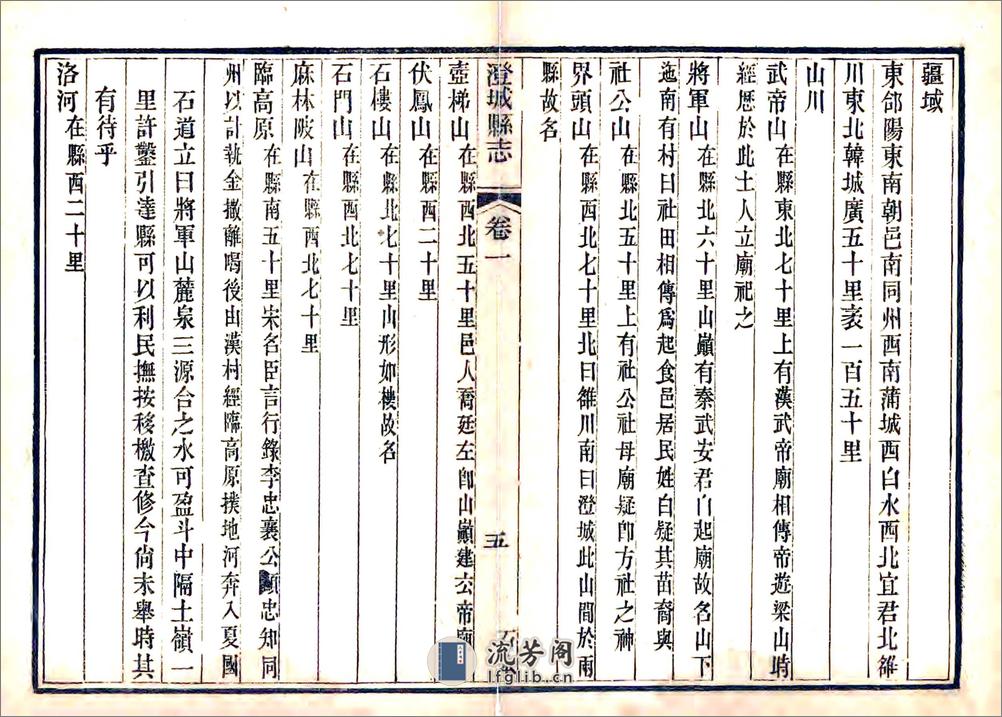 疆域
東郃陽東南朝邑南同州西南蒲城西白水西北宜君北雒
川東北韓城廣五十里袤一百五十里
山川
武帝山在縣東北七十里上有漢武帝廟相傳帝遊梁山時
經歷於此土人立廟祀之
將軍山在縣北六十里山巔有秦武安君白起廟故名山下
迤南有村曰社田相傳爲起食邑居民姓白疑其苗裔與
社公山在縣北五十里上有社公社母廟疑卽方社之神
界頭山在縣西北七十里北曰雒川南曰澄城此山間於兩
縣故名
澄城縣志
卷一
五
壺梯山在縣西北五十里邑人喬廷左卽山巔建玄帝廟
伏鳳山在縣西二十里
石樓山在縣北七十里山形如樓故名
石門山在縣西北七十里
麻林陂山在縣西北七十里
臨高原在縣南五十里宋名臣言行錄李忠襄公顯忠知同
州以計執金撒離喝後由漢村經臨高原撲地河奔入夏國
石道立曰將軍山麓泉三源合之水可盈斗中隔土嶺一
里許鑿引達縣可以利民撫按移檄查修今尚未舉時其
有待乎
洛河在縣西二十里
流芳阁
lfglib.com